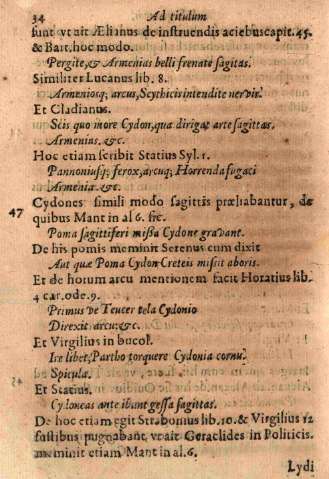 34 Ad titulum
sunt vt ait Ælianus de instruendis aciebus capit. 45.
& Bait. hoc modo.
Pergite, & Armenias belli frenate sagitas.
Similiter Lucanus lib. 8.
Armeniosq; arcus, Scythicis intendite nervis.
Et Cladianus.
Scis quo more Cydon, qua dirigat arte sagittas.
Armenias. &c.
Hoc etiam scribit Statius Syl. 1.
Pannoniusq; ferox, arcuq; Horrenda fugaci
Armenia. &c.
Cydones simili modo sagittis præliabantur, de
47 quibus Mant in al 6. sic.
Poma sagittiferi missa Cydone gravant.
De his pomis meminit Serenus cum dixit
Aut quæ Poma Cydon Creteis misit ab oris.
Et de horum arcu mentionem facit Horatius lib.
4 car. ode. 9.
Primus ve Teucer tela Cydonio
Direxit arcu: &c.
Et Virgilius in bucol.
Ire libet, Partho torquere Cydonia cornu.
Spicula.
Et Statius.
Cydoneas ante ibant gessa sagittas.
De hoc etiam egit Strabonius lib. 10. & Virgilius 12
fustibus pugnabant, vt ait Geraclides in Politicis.
meminit etiam Mant in al. 6.
Lydi